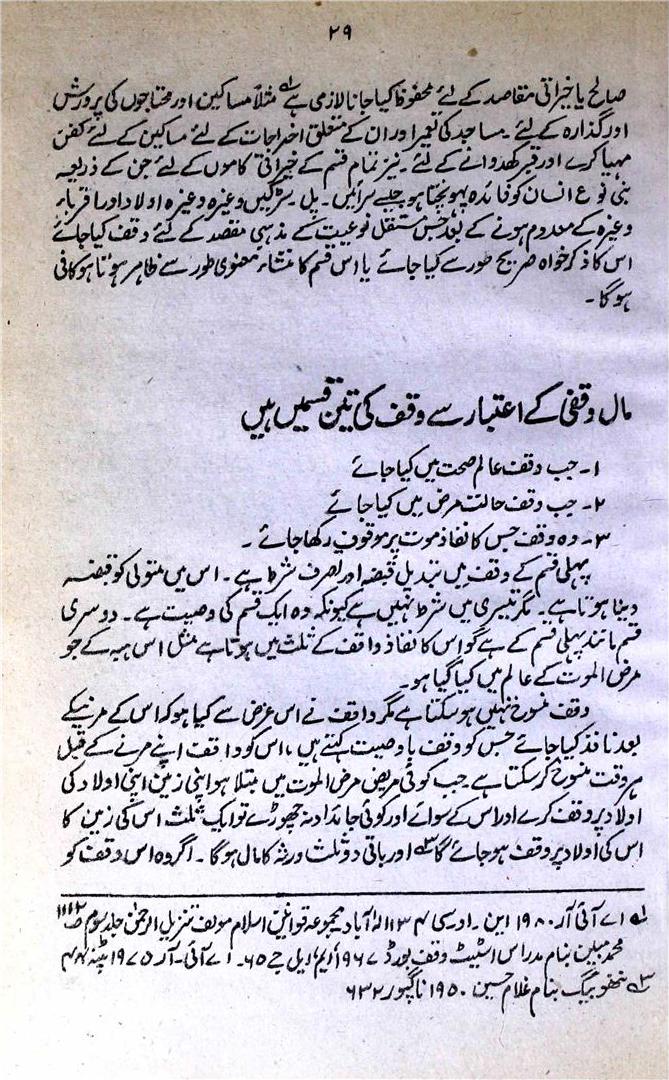 ۲۹
صالح یا خیراتی مقاصد کے لئے محفوظ کیا جانا لازمی ہے لہ مثلاً مساکین اور محتاجوں کی پرورش
اور گذارہ کے لئے۔ مساجد کی تعمیر اور ان کے متعلق اخراجات کے لئے مساکین کے لئے کفن
مہیا کرے اور قبر کھدوانے کے لئے۔ نیز تمام قسم کے خیراتی کاموں کے لئے جن کے ذریعہ
بنی نوع انسان کو فائدہ پہونچتا ہو جیسے سرائیں۔ پل۔ سڑکیں وغیرہ وغیرہ اولاد اور اقرباء
وغیرہ کے معدوم ہونے کے بعد جس مستقل نوعیت کے مذہبی مقصد کے لئے وقف کیا جائے
اس کا ذکر خواہ صریح طور سے کیا جائے یا اس قسم کا منشاء معنوی طور سے ظاہر ہوتا ہو کافی
ہوگا۔
مال وقفی کے اعتبار سے وقف کی تین قسمیں ہیں
۱۔ جب وقف عالم صحت میں کیا جائے
۲۔ جب وقف حالت مرض میں کیا جائے
۳۔ وہ وقف جس کا نفاذ موت پر موقوف رکھا جائے۔
پہلی قسم کے وقف میں تبدیل قبضہ اور تصرف شرط ہے۔ اس میں متولی کو قبضہ
دینا ہوتا ہے۔ مگر تیسری میں شرط نہیں ہے کیونکہ وہ ایک قسم کی وصیت ہے۔ دوسری
قسم مانند پہلی قسم کے ہے گو اس کا نفاذ واقف کے ثلث میں ہوتا ہے مثل اس ہبہ کے جو
مرض الموت کے عالم میں کیا گیا ہو۔
وقف منسوخ نہیں ہو سکتا ہے مگر واقف نے اس غرض سے کیا ہو کہ اس کے مرنیکے
بعد نافذ کیا جائے جس کو وقف با وصیت کہتے ہیں، اس کو واقف اپنے مرنے کے قبل
ہر وقت منسوخ کر سکتا ہے۔ جب کوئی مریض مرض الموت میں مبتلا ہو اپنی زمین اپنی اولاد کی
اولاد پر وقف کرے اور اس کے سوائے اور کوئی جائداد نہ چھوڑے تو ایک ثلث اس کی زمین کا
اس کی اولاد پر وقف ہو جائے گا ۳ہ اور باقی دو ثلث ورثہ کا مال ہوگا۔ اگر وہ اس وقف کو
لہ اے آئی آر ۱۹۸۰ این۔ او۔ سی ۱۳۴ الہ آباد مجموعہ قوانین اسلام مولف تنزیل الرحمٰن جلد سوم ص ۱۱۱۲
محمد مبین بنام مدراس اسٹیٹ وقف بورڈ ۱۹۶۷ ایم ایل جے ۶۵۔ اے آئی۔ آر ۱۹۷۵ پٹنہ
۳ہ نتھو بیگ بنام غلام حسین ۱۹۵۰ ناگپور ۶۳۲